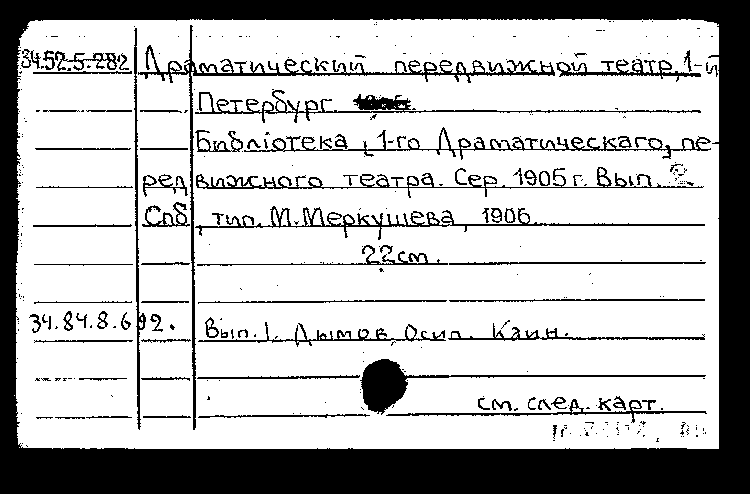 34.52.5.282 Драматический передвижной театр, 1-й
Петербург
Библіотека [1-го Драматическаго] пе-
редвижного театра. Сер. 1905 г. Вып. 2
Спб, тип. М. Меркушева, 1906.
22 см.
34.84.8.692. Вып. 1. Дымов, Осип. Каин.
см. след. карт.